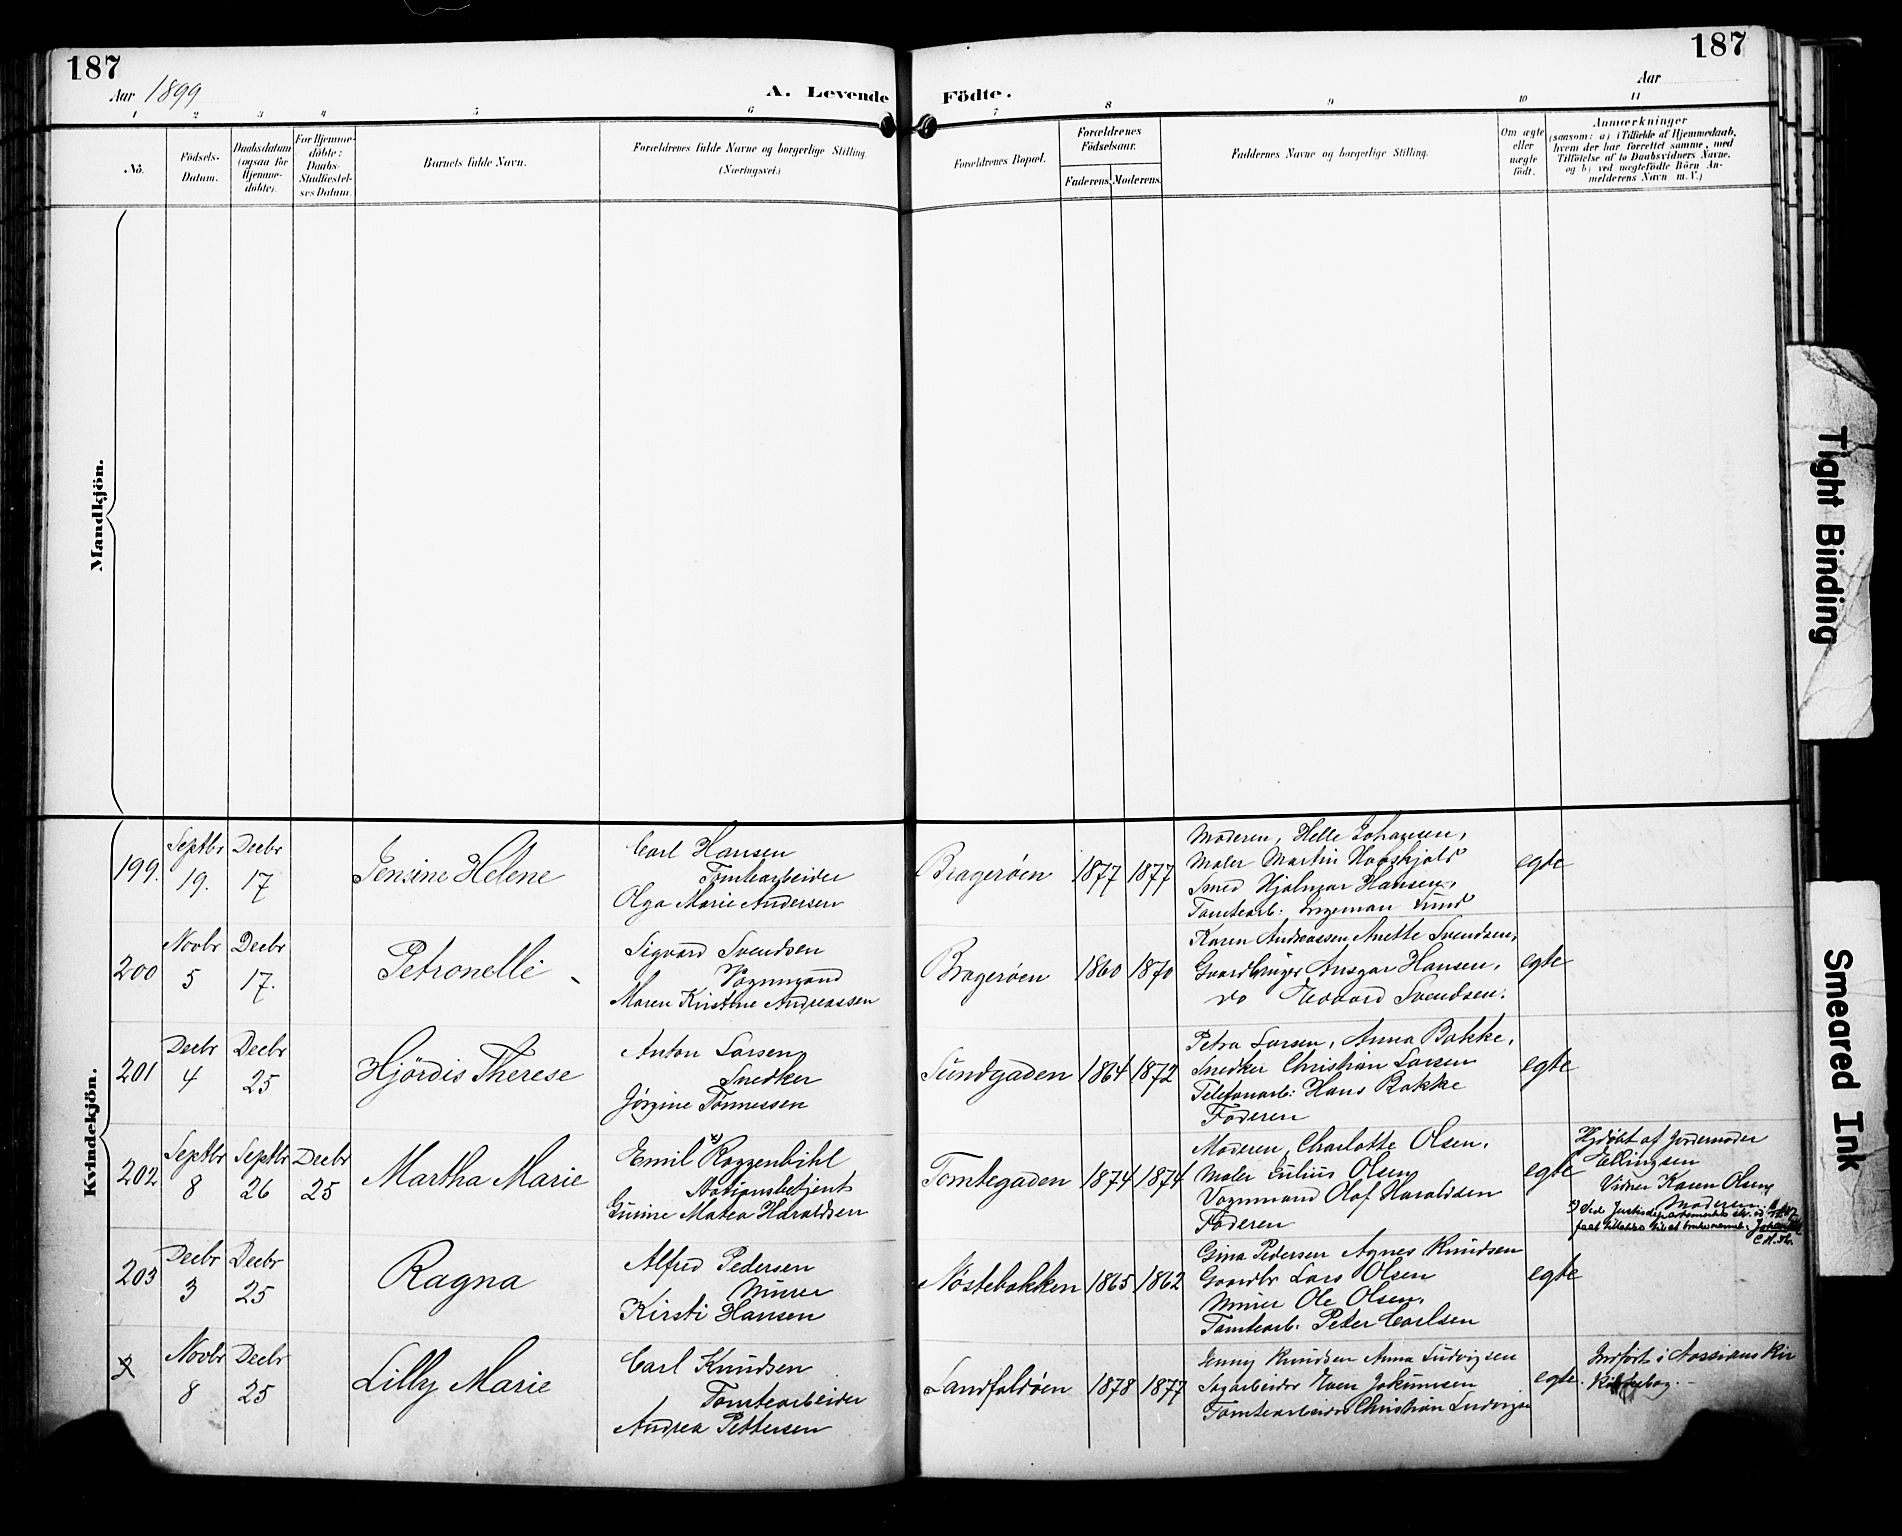 187
Aar 1899
A. Levende
Födte.
187
Aar
1 2 3 4 5 6 7 8 9 10 11
No.
Födsels-
Datum.
Daabsdatum
(ogsaa for
Hjemme-
döbte).
For Hjemme-
döbte:
Daabs-
Stadfæstel-
ses Datum.
Barnets fulde Navn.
Forældrenes fulde Navne og borgerlige Stilling.
(Næringsvei.)
Forældrenes Bopæl.
Forældrenes
Födselsaar.
Faderens. Moderens.
Faddernes Navne og borgerlige Stilling.
Om ægte
eller
uægte
födt.
Anmærkninger
(saasom: a) i Tilfælde af Hjemmedaab,
hvem der har forrettet samme, med
Tilföielse af to Daabsvidners Navne.
og b) ved uægtefödte Börn An-
melderens Navn m. V.)
Mandkjön.
Kvindekjön.
199.
Septbr
19.
Decbr
17
Jensine Helene
Carl Hansen
Tomtearbeider
Olga Marie Andersen
Bragerøen
1877
1877
Moderen, Helle Johansen,
Maler Martin
Smed Hjalmar Hansen,
Tomtearb. Ingeman Lund
egte
200
Novbr
5
Decbr
17.
Petronelle
Sigvard Svendsen
Vognmand
Maren Kristine Andreassen
Bragerøen
1860
1870
Karen Andreassen, Anette Svendsen,
Gaardbruger Ansgar Hansen,
do Edvard Svendsen.
egte
201
Decbr
4
Decbr
25
Hjördis Therese
Anton Larsen,
Snedker
Jørgine Tønnessen
Sundgaden
1864
1872
Petra Larsen, Anna Bakke,
Snedker Christian Larsen
Telefonarb. Hans Bakke
Faderen
egte
202
Septbr
8
Septbr
26
Decbr
25
Martha Marie
Emil x) Roggenbihl
Stationsbetjent
Gusine Matea Haraldsen
Tomtegaden
1874
1874
Moderen, Charlotte Olsen,
Maler Julius Olsen,
Vognmand Olaf Haraldsen
Faderen
egte
Hjdøbt af Jordemoder
Ellingsen
Vidner Karen Olsen,
Moderen.
x) Ved Justisdepartementets
203
Decbr
3
Decbr
25
Ragna
Alfred Pedersen
Murer
Kirsti Hansen
Nøstebakken
1865
1862
Gina Pedersen Agnes Knudsen
Gaardbr Lars Olsen
Murer Ole Olsen,
Tomtearb. Peter Carlsen
egte
Novbr
8
Decbr
25
Lilly Marie
Carl Knudsen
Tomtearbeider
Andrea Pettersen
Landfaldøen
1878
1877
Jenny Knudsen Anna Ludvigsen
Sagarbeider Even Jokumsen
Tomtearbeider Christian Ludvigse
egte.
Indført i
Kirkebog.
Tight Binding
Smeared Ink